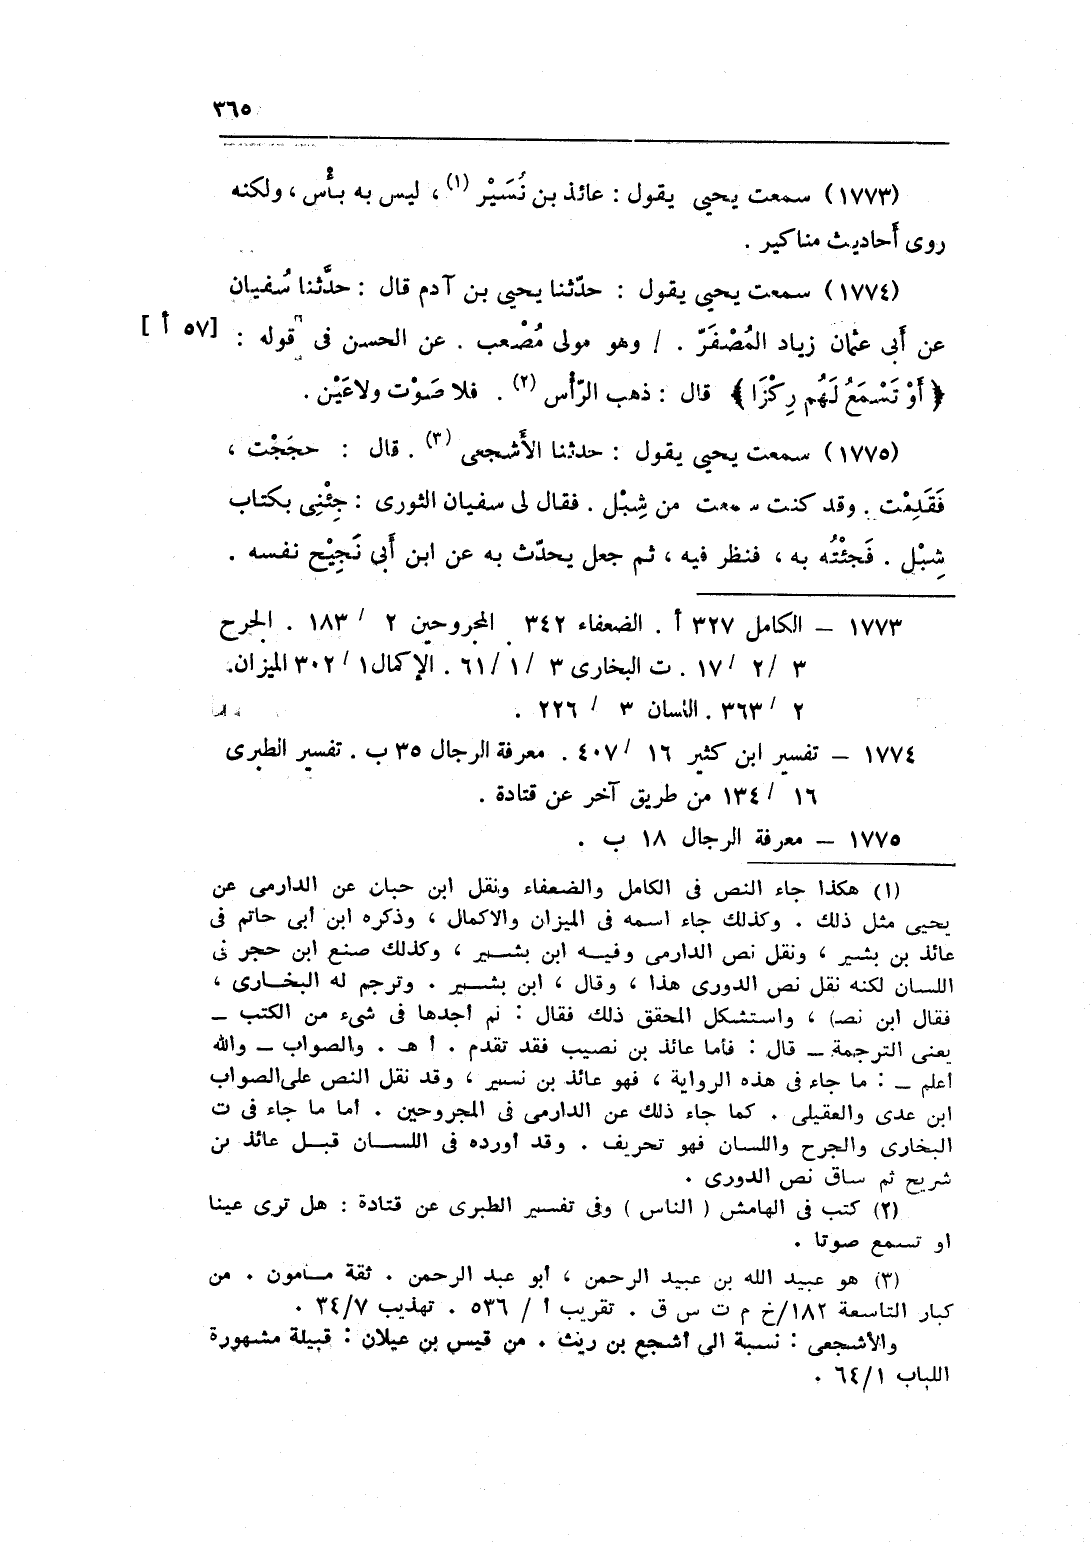 ٣٦٥
(١٧٧٣) سمعت يحيى يقول : عائذ بن نُسَيْر (١) ، ليس به بأس ، ولكنه
روى أَحاديث مناكير .
(١٧٧٤) سمعت يحيى يقول : حدّثنا يحيى بن آدم قال : حدَّثنا سُفيان
عن أَبى عثمان زياد المُصْفَرّ . / وهو مولى مُصْعب . عن الحسن فى قوله : [٥٧ أ]
﴿ أَوْ تَسْمَعُ لَهُم رِكْزًا ﴾ قال : ذهب الرّأْس (٢) . فلا صَوْت ولاعَيْن .
(١٧٧٥) سمعت يحيى يقول : حدثنا الأَشجعى (٣) . قال : حجَجْت ،
فَقَدِمْت . وقد كنت سمعت من شِبْل . فقال لى سفيان الثورى : جِئْنِى بكتاب
شِبْل . فَجئْتُه به ، فنظر فيه ، ثم جعل يحدّث به عن ابن أَبى نَجِيْح نفسه .
١٧٧٣ – الكامل ٣٢٧ أ . الضعفاء ٣٤٢ المجروحين ٢ / ١٨٣ . الجرح
٣ /٢ /١٧ . ت البخارى ٣ /١ /٦١ . الإكمال١ /٣٠٢ الميزان.
٢ / ٣٦٣ . اللسان ٣ / ٢٢٦ .
١٧٧٤ – تفسير ابن كثير ١٦ /٤٠٧ . معرفة الرجال ٣٥ ب . تفسير الطبرى
١٦ /١٣٤ من طريق آخر عن قتادة .
١٧٧٥ – معرفة الرجال ١٨ ب .
(١) هكذا جاء النص فى الكامل والضعفاء ونقل ابن حبان عن الدارمى عن
يحيى مثل ذلك . وكذلك جاء اسمه فى الميزان والاكمال ، وذكره ابن أبى حاتم فى
عائذ بن بشير ، ونقل نص الدارمى وفيه ابن بشير ، وكذلك صنع ابن حجر فى
اللسان لكنه نقل نص الدورى هذا ، وقال ، ابن بشير . وترجم له البخارى ،
فقال ابن نصر) ، واستشكل المحقق ذلك فقال : لم أجدها فى شىء من الكتب –
يعنى الترجمة – قال : فأما عائذ بن نصيب فقد تقدم . أ هـ . والصواب – والله
أعلم – : ما جاء فى هذه الرواية ، فهو عائذ بن نسير ، وقد نقل النص على الصواب
ابن عدى والعقيلى . كما جاء ذلك عن الدارمى فى المجروحين . أما ما جاء فى ت
البخارى والجرح واللسان فهو تحريف . وقد أورده فى اللسان قبل عائذ بن
شريح ثم ساق نص الدورى .
(٢) كتب فى الهامش ( الناس ) وفى تفسير الطبرى عن قتادة : هل ترى عينا
او تسمع صوتا .
(٣) هو عبيد الله بن عبيد الرحمن ، أبو عبد الرحمن . ثقة مأمون . من
كبار التاسعة ١٨٢/خ م ت س ق . تقريب أ / ٥٣٦ . تهذيب ٣٤/٧ .
والأشجعى : نسبة الى أشجع بن ريث . من قيس بن عيلان : قبيلة مشهورة
اللباب ٦٤/١ .